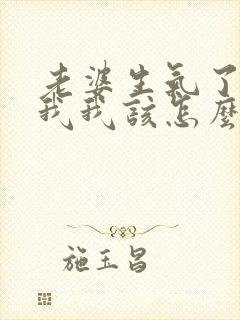 老婆生氣了
我我該怎麼
施玉昌